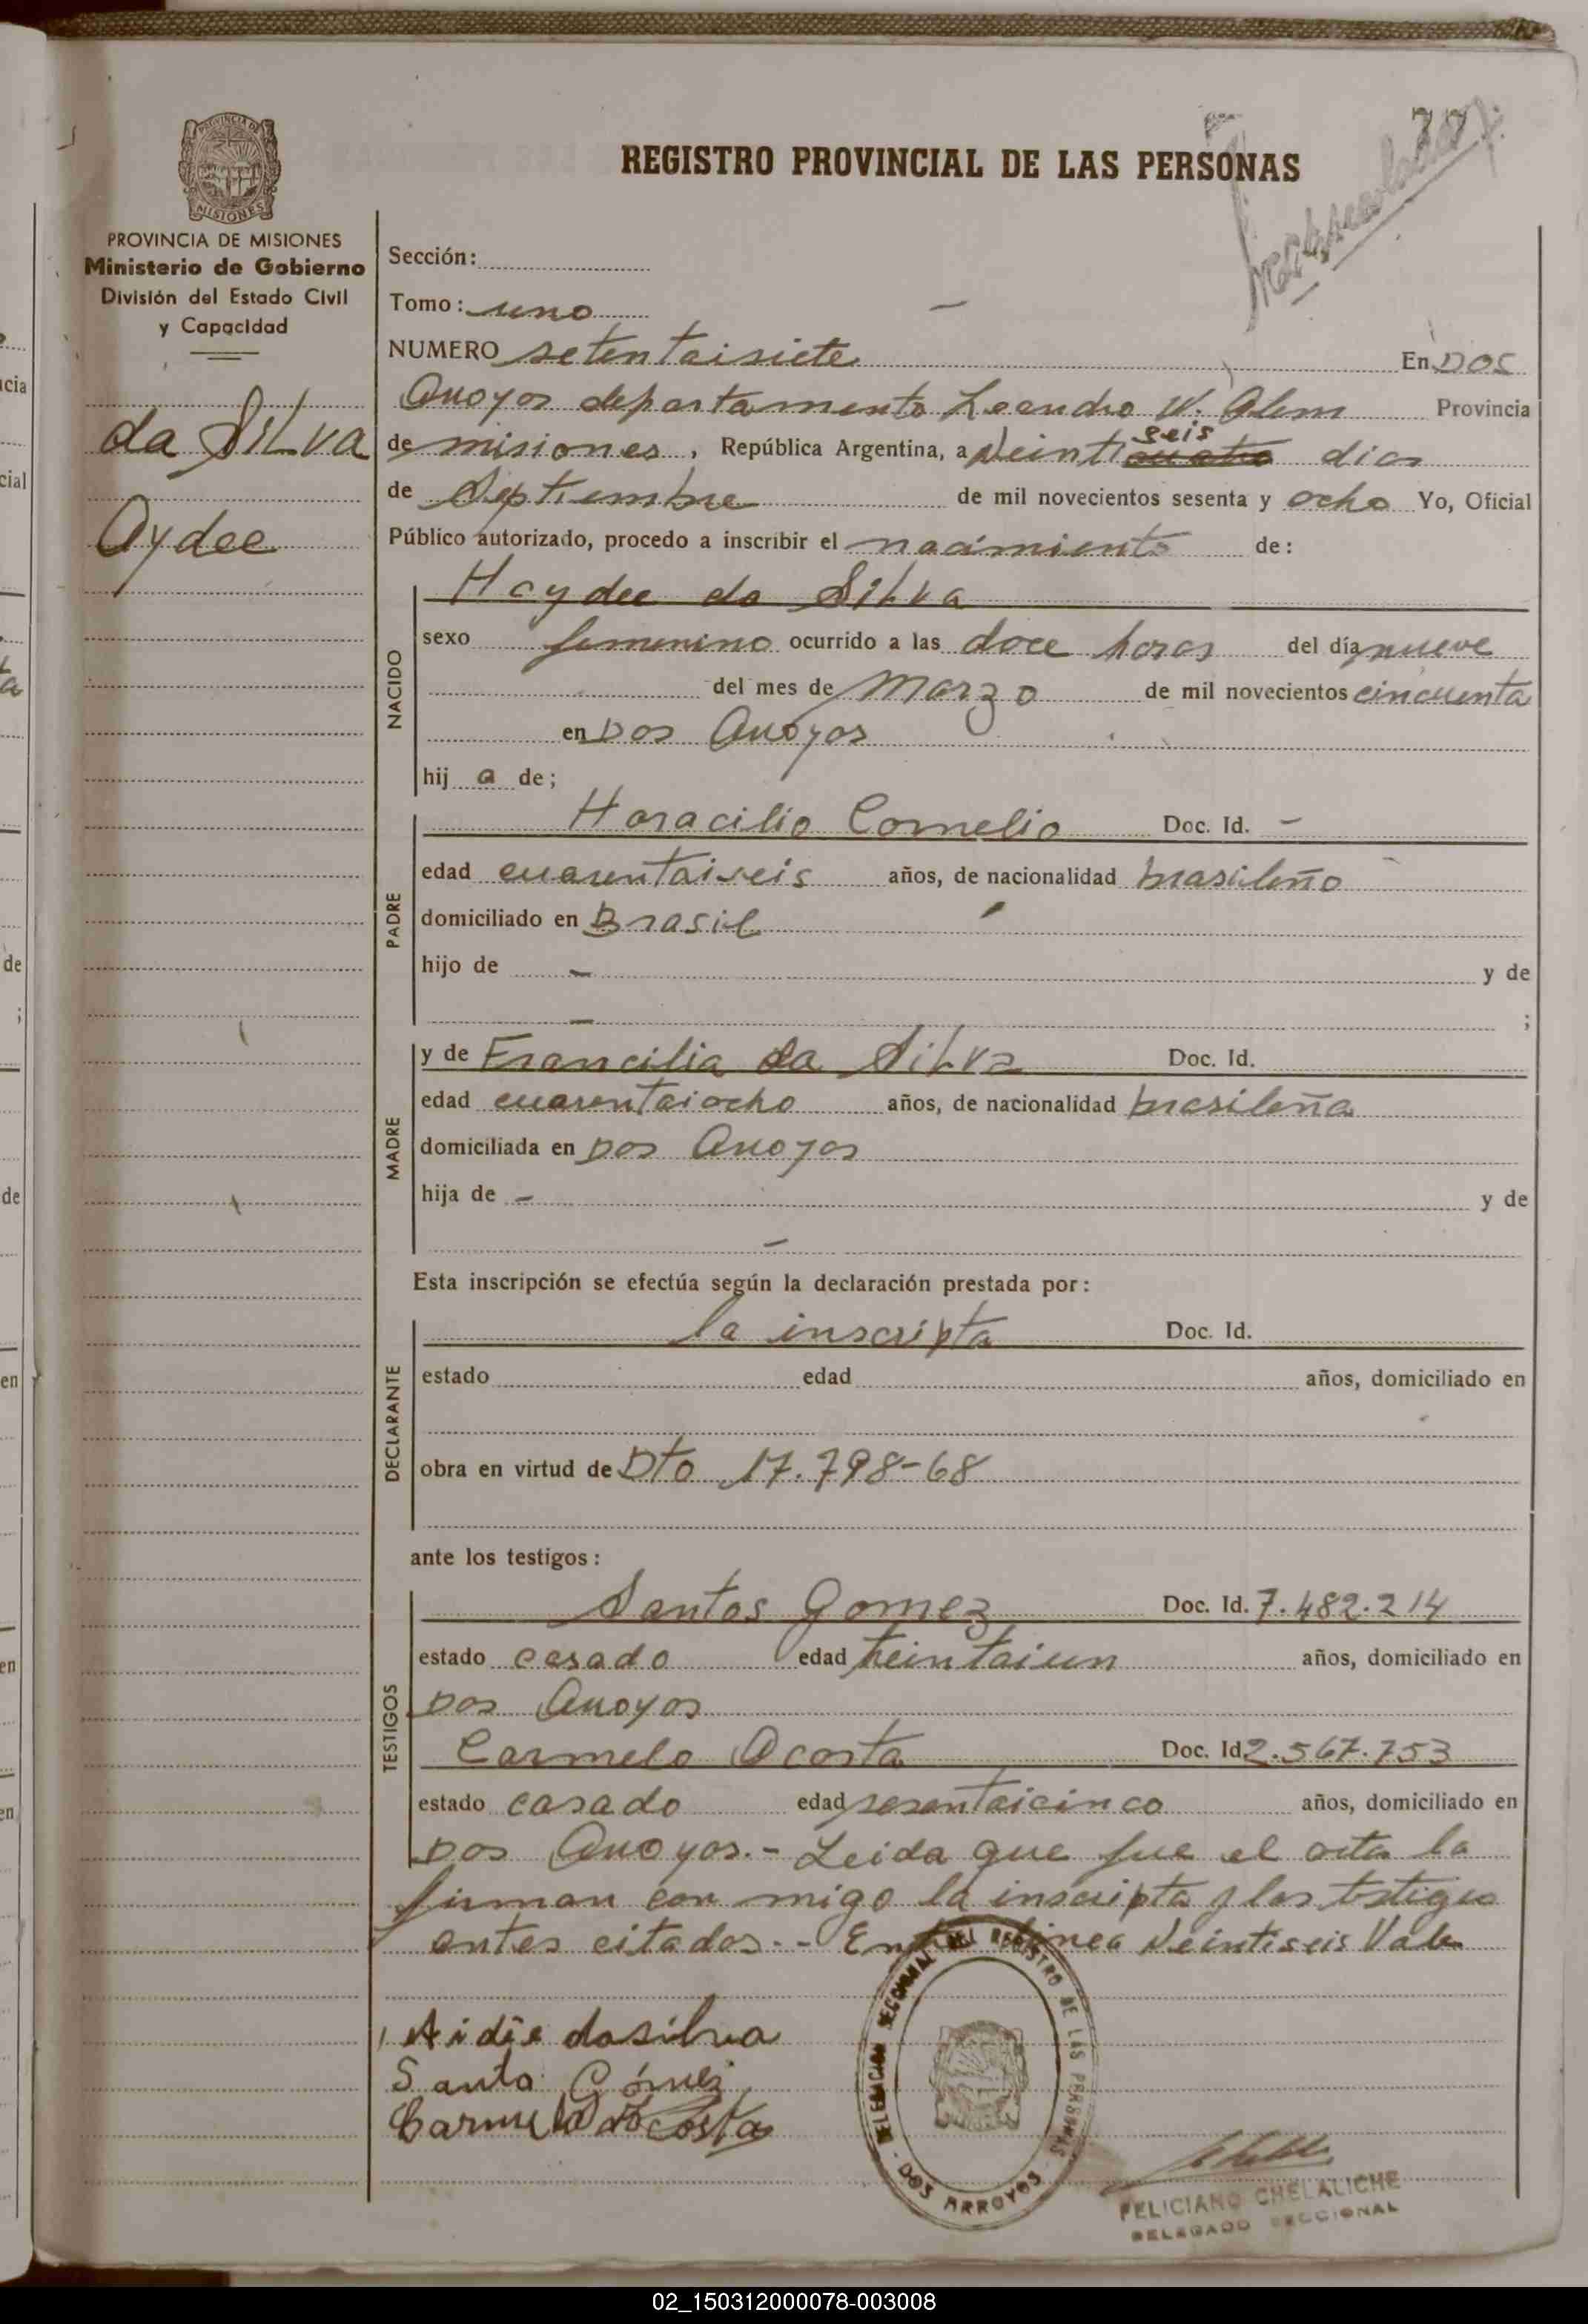 77
REGISTRO PROVINCIAL DE LAS PERSONAS
PROVINCIA DE MISIONES
Ministerio de Gobierno
División del Estado Civil
y Capacidad
da Silva
Aydee
Sección:
Tomo: uno
NUMERO setentaisiete En Dos
Arroyos departamento Leandro N. Alem Provincia
de misiones, República Argentina, a Veinticuatro seis dias
de Septiembre de mil novecientos sesenta y ocho Yo, Oficial
Público autorizado, procedo a inscribir el nacimiento de:
NACIDO
Haydee da Silva
sexo femenino ocurrido a las doce horas del día nueve
del mes de Marzo de mil novecientos cincuenta
en Dos Arroyos
hij a de;
PADRE
Horacilio Cornelio Doc. Id. -
edad cuarentaiseis años, de nacionalidad brasileño
domiciliado en Brasil
hijo de - y de
- ;
MADRE
y de Francilia da Silva Doc. Id.
edad cuarentaiocho años, de nacionalidad brasileña
domiciliada en Dos Arroyos
hija de - y de
-
Esta inscripción se efectúa según la declaración prestada por:
DECLARANTE
la inscripta Doc. Id.
estado edad años, domiciliado en
obra en virtud de Dto 17.798-68
ante los testigos:
TESTIGOS
Santos Gomez Doc. Id. 7.482.214
estado casado edad treintaiun años, domiciliado en
Dos Arroyos
Carmelo Acosta Doc. Id 2.567.753
estado casado edad sesentaicinco años, domiciliado en
Dos Arroyos.- Leida que fue el acta la
firman con migo la inscripta y los testigos
antes citados.- Entre linea Veintiseis Vale
Aidée dasilva
Santo Gómez
Carmelo Acosta
DELEGACION SECCIONAL DEL REGISTRO DE LAS PERSONAS
DOS ARROYOS
FELICIANO CHELALICHE
DELEGADO SECCIONAL
02_150312000078-003008